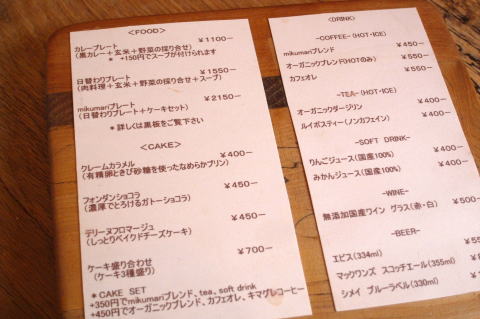 ＜FOOD＞
カレープレート ￥1100－
（黒カレー＋玄米＋野菜の採り合せ）
＊ +150円でスープが付けられます
日替わりプレート ￥1550－
（肉料理＋玄米＋野菜の採り合せ＋スープ）
mikumariプレート ￥2150－
（日替わりプレート＋ケーキセット）
＊ 詳しくは黒板をご覧下さい
＜CAKE＞
クレームカラメル ￥400－
（有精卵ときび砂糖を使ったなめらかプリン）
フォンダンショコラ ￥450－
（濃厚でとろけるガトーショコラ）
デリーヌフロマージュ ￥450－
（しっとりベイクドチーズケーキ）
ケーキ盛り合わせ ￥700－
（ケーキ3種盛り）
＊CAKE SET
+350円でmikumariブレンド、tea、soft drink
+450円でオーガニックブレンド、カフェオレ、キマグレコーヒー
＜DRINK＞
－COFFEE－（HOT・ICE）
mikumariブレンド ￥450－
オーガニックブレンド（HOTのみ） ￥550－
カフェオレ ￥550－
－TEA－（HOT・ICE）
オーガニックダージリン ￥400－
ルイボスティー（ノンカフェイン） ￥400－
－SOFT DRINK－
りんごジュース（国産100%） ￥400－
みかんジュース（国産100%） ￥400－
－WINE－
無添加国産ワイン グラス（赤・白） ￥500－
－BEER－
エビス（334ml）
マックワンズ スコッチエール（355ml）
シメイ ブルーラベル（330ml）